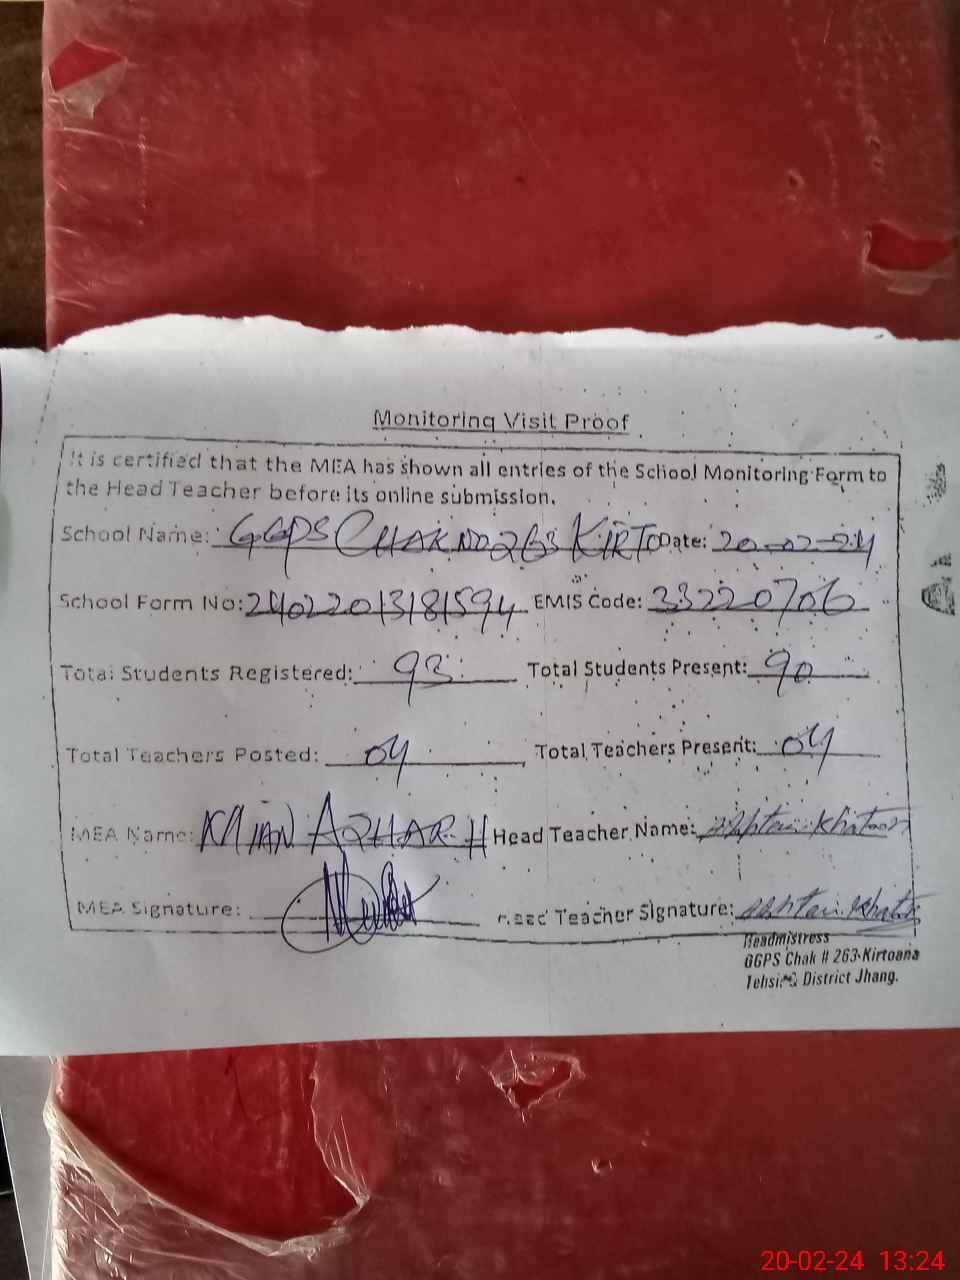 Monitoring Visit Proof
It is certified that the MEA has shown all entries of the School Monitoring Form to
the Head Teacher before its online submission.
School Name: GGPS CHAK NO 263 KIRTO Date: 20-02-24
School Form No: 24022013181594 EMIS Code: 33220706
Total Students Registered: 93 Total Students Present: 90
Total Teachers Posted: 04 Total Teachers Present: 04
MEA Name: AZHAR H Head Teacher Name: Khatoon
MEA Signature: Head Teacher Signature:
Headmistress
GGPS Chak # 263-Kirtoana
Tehsil District Jhang.
20-02-24 13:24